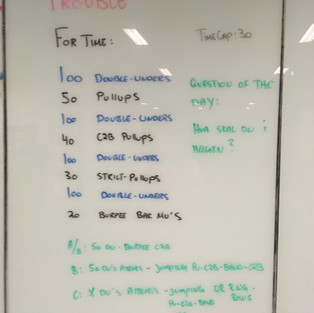 TROUBLE
FOR TIME:
TIMECAP: 30
100 DOUBLE-UNDERS
50 PULLUPS
100 DOUBLE-UNDERS
40 C2B PULLUPS
100 DOUBLE-UNDERS
30 STRICT-PULLUPS
100 DOUBLE-UNDERS
20 BURPEE BAR MU'S
QUESTION OF THE
DAY:
HVA SKAL DU I
HELGEN?
A/B: 50 DU - BURPEE C2B
B: 50 DU'S - JUMPING PU-C2B-BAND-C2B
C: X DU'S - JUMPING OR RING-
PU-C2B-BAND ROWS